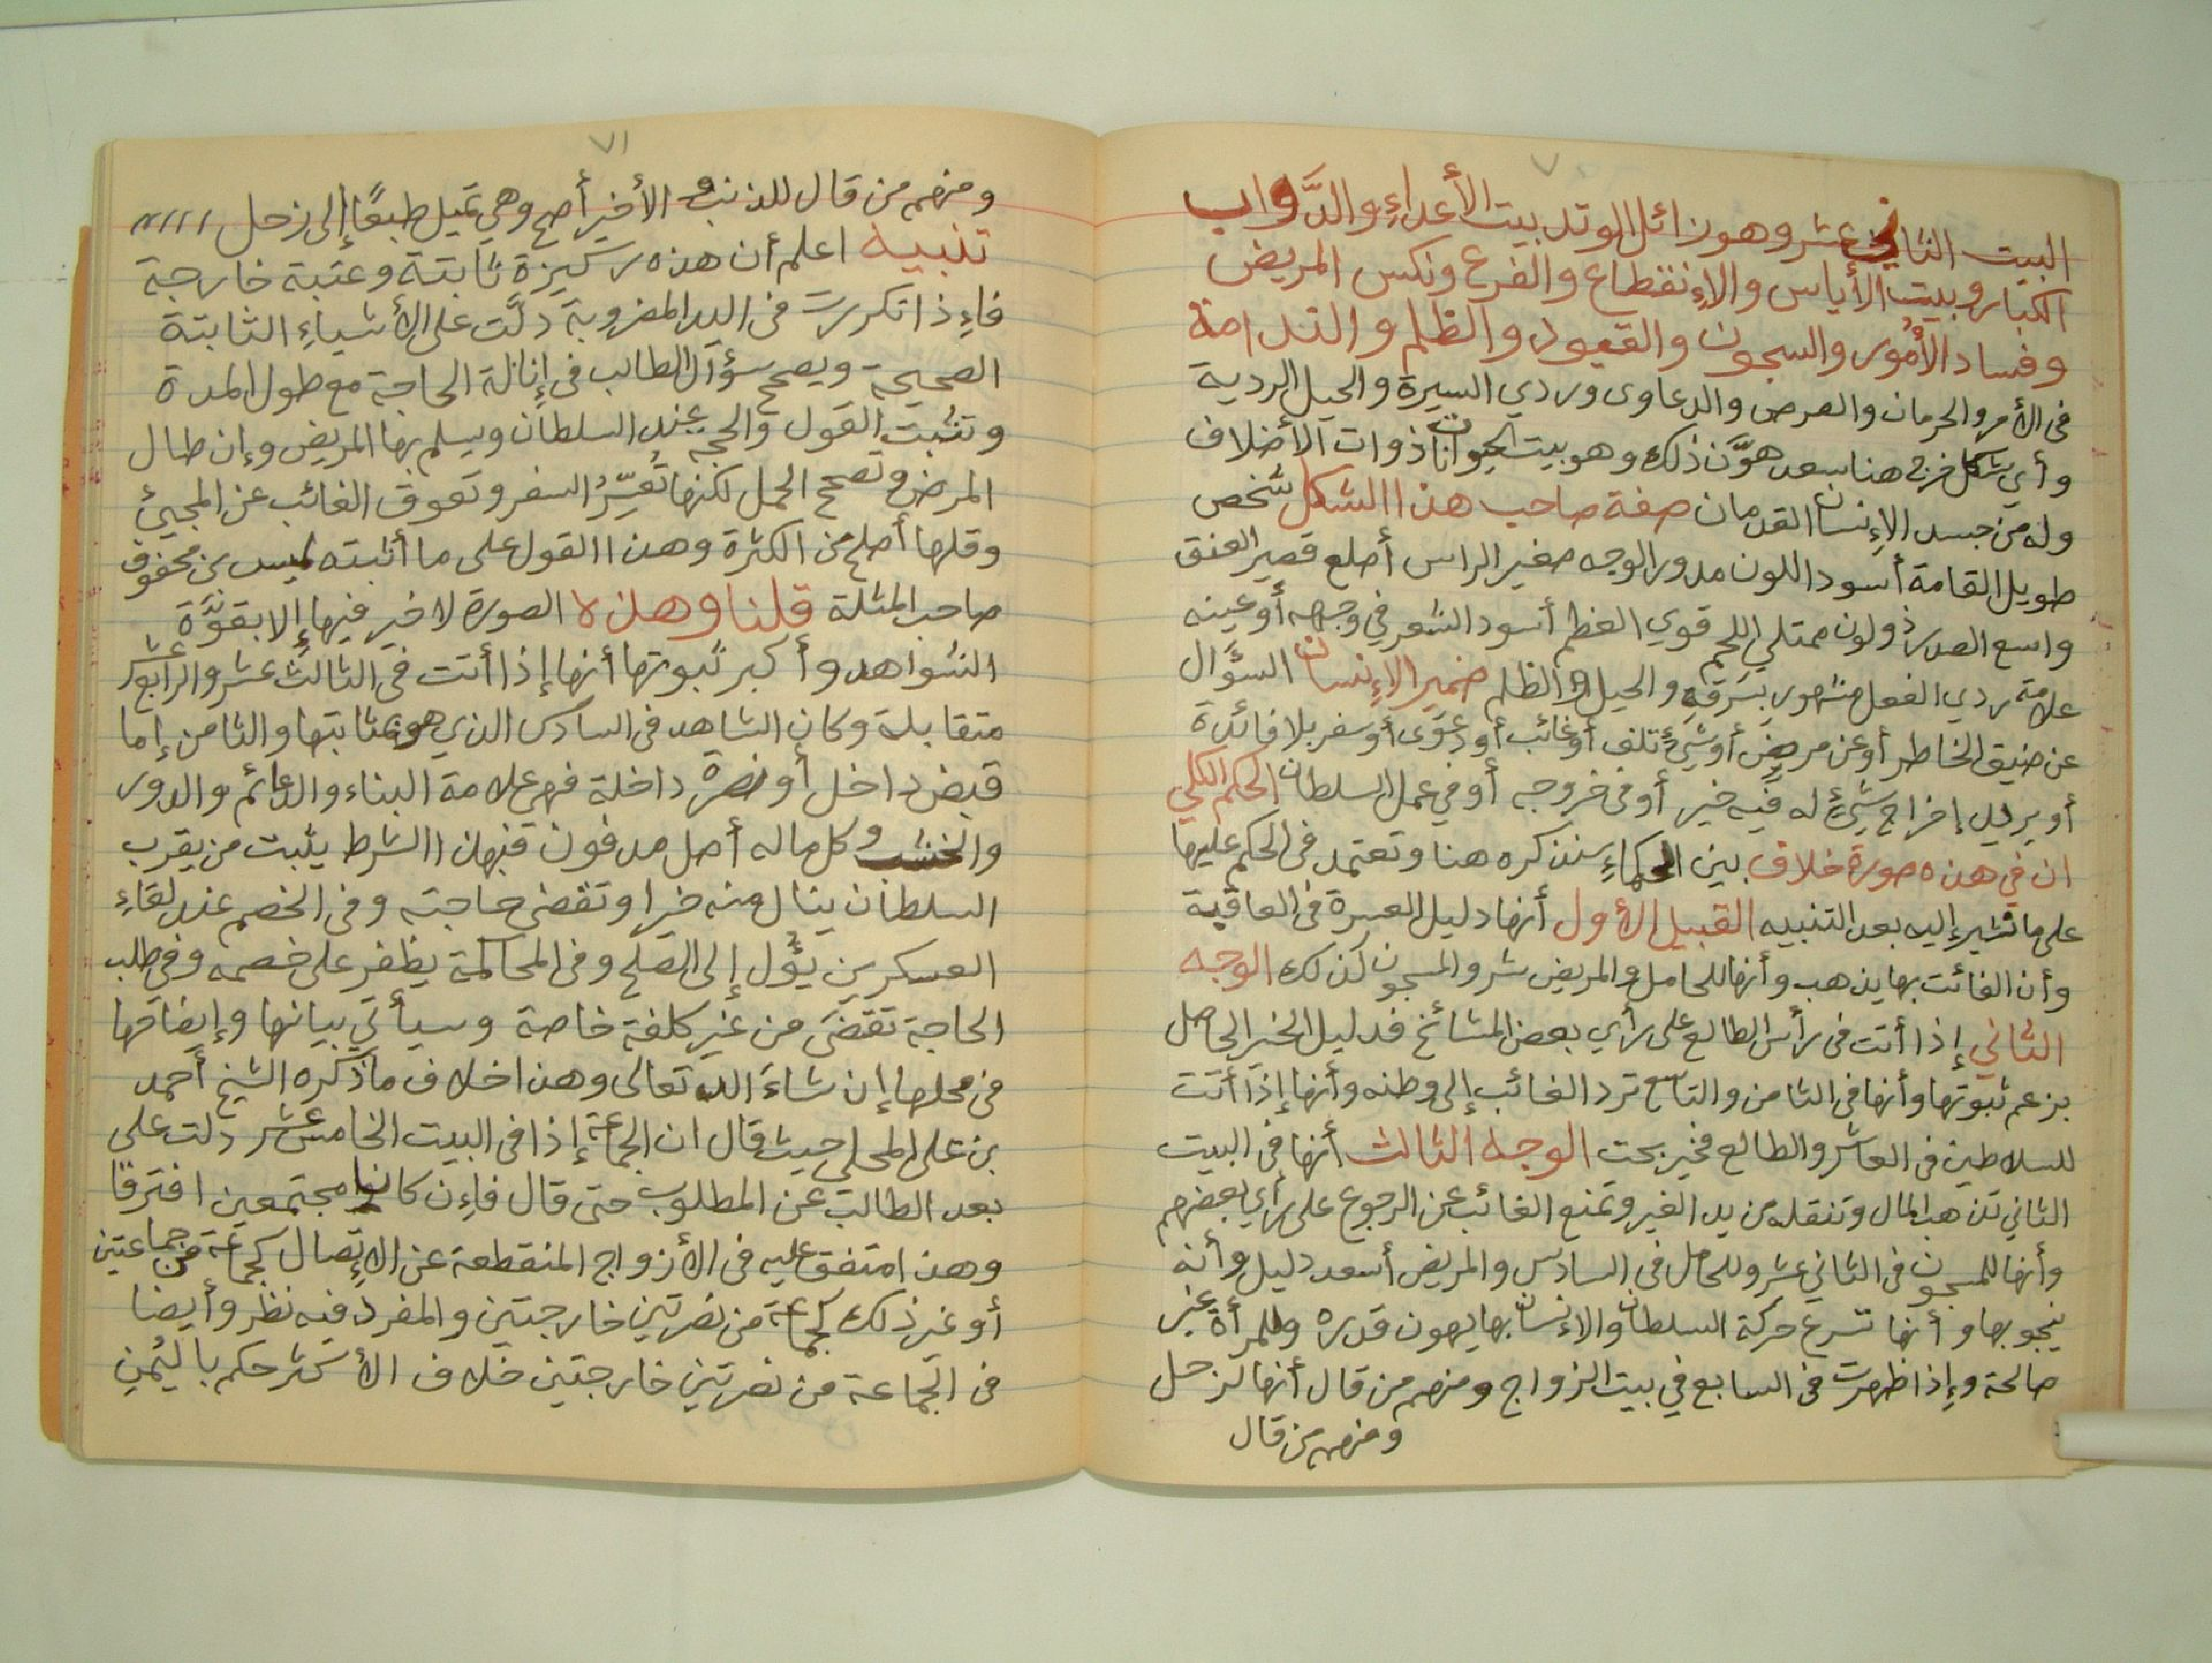 ٧٠
البيت الثاني عشر وهو زائل الوتد بيت الأعداءِ والدَّواب
الكبار وبيت الأياس والاٍنقطاع والفرع ونكس المريض
وفساد الأمُور والسجون والقيود والظلم والندامة
فى الأمر والحرمان والمرض والدعاوى وردي السيرة والحيل الردية
وأي شكل خرج هنا سعد هوَّن ذلك وهو بيت الحيوانات ذوات الأضلاف
وله من جسد الإنسان القدمان صفة صاحب هذا الشكل شخص
طويل القامة أسود اللون مدور الوجه صغير الراس أصلع قصير العنق
واسع الصدر ذو لون ممتلي اللحم قوي العظم أسود الشعر في وجهه أو عينه
علامة ردي الفعل مشهور بسرقه والحيل والظلم ضمير الإنسان السؤال
عن ضيق الخاطر أو عن مريض أو شيءٍ تلف أو غائب أو دعوى أو سفر بلا فائدة
أو يريد إخراج شيءٍ له فيه خير أو فى خروجه أو في عمل السلطان الحكم الكلي
ان في هذه صورة خلاف بين الحكماءِ سنذكره هنا وتعتمد فى الحكم عليها
على ما نشير إليه بعد التنبيه القبيل الأول أنها دليل العسرة فى العاقبة
وأن الفائت بها يذهب وأنها للحامل والمريض شر والمسجون كذلك الوجه
الثاني إذا أتت فى رأس الطالع على رأي بعض المشائخ فدليل الخير الحاصل
بزعم ثبوتها وأنها فى الثامن والتاسع ترد الغائب إلى وطنه وأنها إذا أتت
للسلاطين فى العاشر والطالع فخير بحت الوجه الثالث أنها فى البيت
الثاني تذهب المال وتنقله من يد الغير وتمنع الغائب عن الرجوع على رأي بعضهم
وأنها للمسجون فى الثاني عشر وللحامل فى السادس والمريض أسعد دليل وأنه
ينجو بها وأنها تسرع حركة السلطان والانسان بها يهون قدره وللمرأة غير
صالحة وإذا ظهرت فى السابع في بيت الزواج ومنهم من قال أنها لزحل
ومنهم من قال
٧١
ومنهم من قال للذنب والأخير أصح وهي تميل طبعًا إلى زحل
تنبيه اعلم أن هذه ركيزة ثابتة وعتبة خارجة
فاٍذا تكررت فى اليد المضروبة دلَّت على الأشياءِ الثابتة
الصحيحة ويصح سؤآل الطالب فى إنالة الحاجة مع طول المدة
وتثبت القول والحجه عند السلطان ويسلم بها المريض وإن طال
المرض وتصحح الحمل لكنها تُعَسِّرُ السفر وتعوق الغائب عن المجيئ
وقلها أصلح من الكثرة وهذا القول على ما أثبته ليس بن محفوف
صاحب المثلة قلنا وهذه الصورة لا خير فيها إلا بقوَّة
الشواهد وأكبر ثبوتها أنها إذا أتت فى الثالث عشر والرابع عشر
متقابلة وكان الشاهد فى السادس الذي هو مثابتها والثامن إما
قبض داخل أو نصرة داخلة فهي علامة البناء والدعائم والدور
والخشب وكل ماله أصل مدفون فبهذا الشرط يثبت من يقرب
السلطان ينال منه خيرا وتقضى حاجته وفى الخصم عند لقاءِ
العسكرين يؤُل إلى الصلح وفى المحاكمة يظفر على خصمه وفي طلب
الحاجة تقضَى من غير كلفة خاصة وسيأتي بيانها وإيضاحها
فى محلها إن شاءَ الله تعالى وهذا خلاف ما ذكره الشيخ أحمد
بن على المحلي حيث قال ان الجماعة إذا فى البيت الخامس عشر دلت على
بعد الطالب عن المطلوب حتى قال فاٍن كانا مجتمعين افترقا
وهذا متفق عليه فى الأزواج المنقطعة عن الاٍتصال كجماعة من جماعتين
أو غير ذلك كجماعة من نصرتين خارجتين والمفرد فيه نظر وأيضا
فى الجماعة من نصرتين خارجتين خلاف الأكثر حكم باليُمنِ